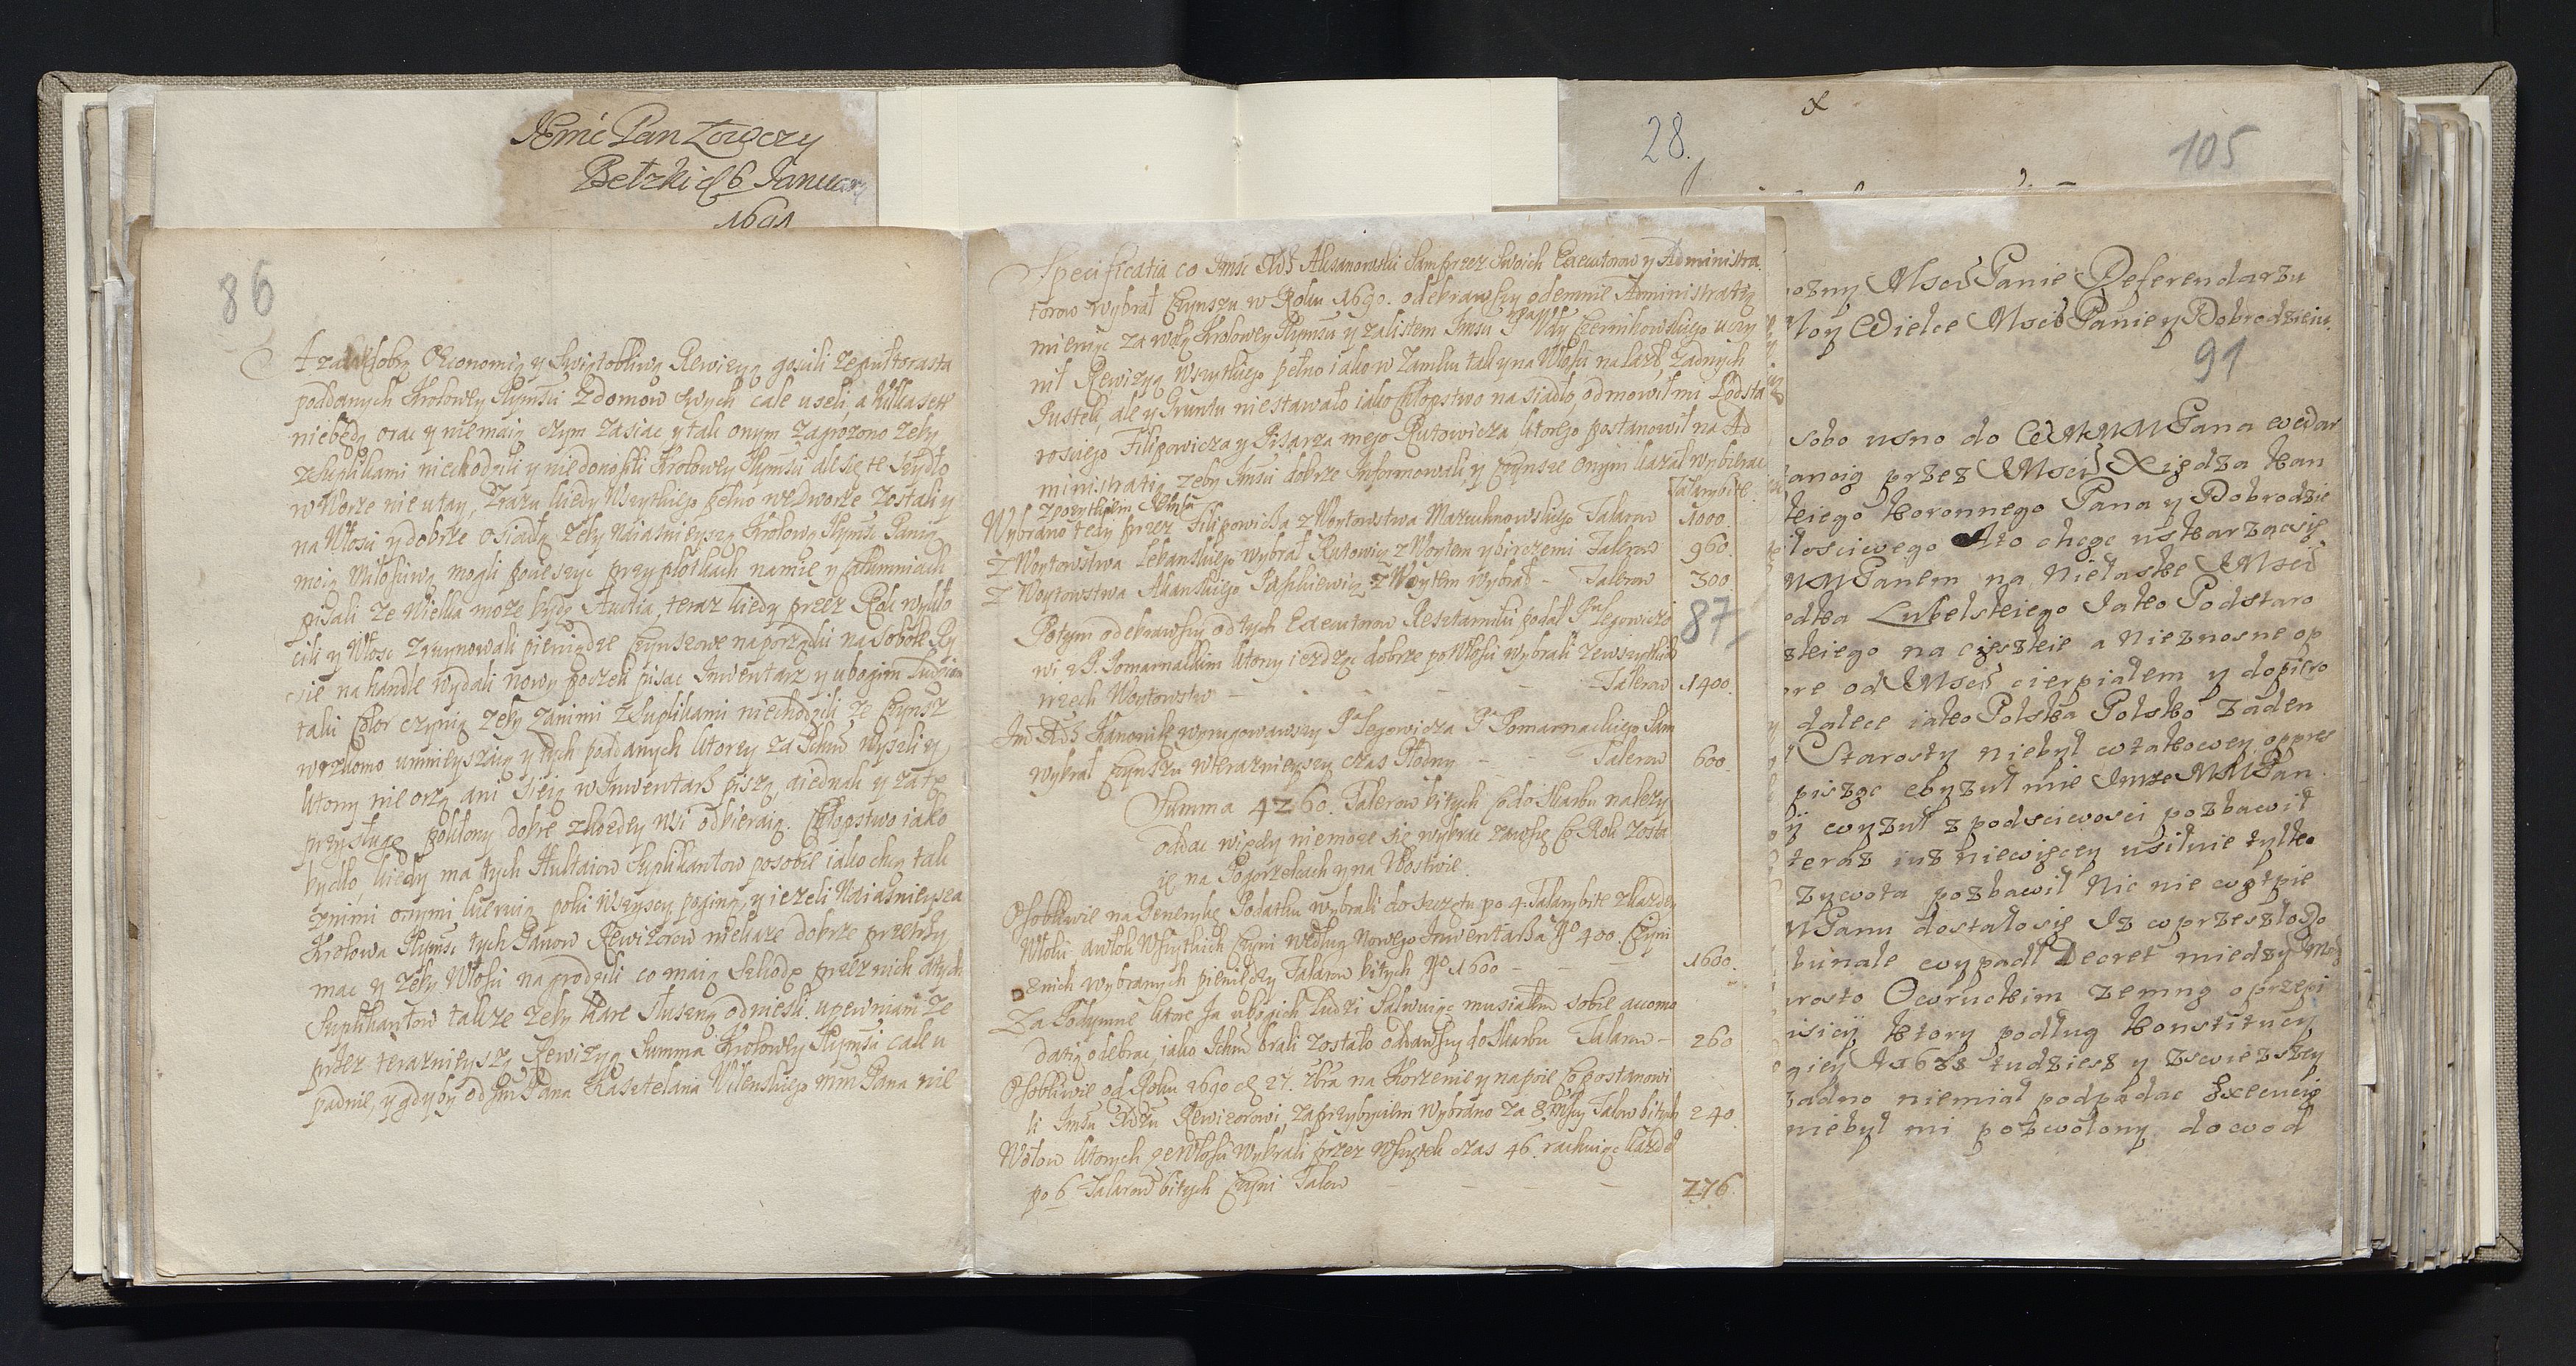 Jmć Pan Łowczy
Bełzki d 6 January
1691
86
A za dobrą Oekonomią y Swiątobliwą Rewizyą gosili ze pułtorasta
poddanych Krolowey Jeymści z domow swych cale uszli, a kilkaset
niebędą orac y niemaią czym zasiac y tak onym zagrozono zeby
z Suplikami niechodzili y niedonosili Krolowey Jeymści ale się te szydło
w Worze nie utay, Zrazu kiedy Wszytkiego pełno we Dworze zostali y
na Włosci y dobrze osiadłą zeby Náiasnieyszą Krolową Jeymść Panią
moią Miłosciwą mogli pocieszyc przy plotkach na mie y Calumniach
pisali ze Wielka moze bydz Auctia, teraz kiedy przez Rok wykło
cili y Włosc zruynowali pieniądze Czynszowe na porządki na Sobole Ry
sie na handle wydali nowy poczeli pisac Inwentarz y ubogim Ludziom
taki Color czynią zeby za nimi z Suplikami niechodzili ze Czynsz
wrzkomo umnieyszaią y tych poddanych ktorzy za Ichm wyszli y
ktorzy nie orzą ani sieią w Inwentarz piszą, aiednak y za te
przysługę pokłony dobre z kozdey wsi odbieraią. Chłopstwo iako
bydło, kiedy ma tych Hultaiow Suplikantow posobie iako chcą tak
znimi onymi kieruią poki wszyscy poginą, y iezeli Náiasnieysza
Krolowa Jeymść tych Panow Rewizorow niekaze dobrze przetrzy
mac y zeby Włosci nagrodzili co maią Szkodę przez nich a tych
Suplikantow takze zeby kare słuszną odniesli. upewniam ze
przez teraznieyszą Rewizyą Summa Krolowey Jeymści cale u
padnie, y gdyby od Jmć Pana Kasztelana Wilenskiego mm Pana nie
Specificatia co Jmść Xdz Aksanowski sam przez swoich Executorow y Administra
torow wybrał Czynszu w Roku 1690. odebrawszy odemnie Administratią
mieniąc za wolą Krolowey Jeymści y za listem Jmsci Pa Wdy Czernihowskiego uczy
nił Rewizyą Wszytkiego pełno iako w Zamku tak y na Włosci nalazł, zadnych
Pustek, ale y Gruntu niestawało iako Chłopstwo na siadło, odmowił mi Podsta
rosciego Filipowicza y Pisarza mego Rutowicza ktorego postanowił na Ad
ministratią zeby Jmsci dobrze Informowali, y Czynsze onym kazał wybierac
Talary bite.
Wybrano tedy przez Filipowicza z Woytowstwa Marcuhnowskiego Talarow 1000.
Z Woytowstwa Lebanskiego wybrał Rutowicz z Woytem y dziczemi Talerow 960.
Z Woytowstwa Akanskiego Paszkiewicz z Woytem wybrał - Talerow 300
87
Potym odebrawszy od tych Executorow Resztamiki podał Pu Legowiczo
wi y P. Pomarnackim ktorzy iezdząc dobrze po Włosci wybrali ze wszytkich
trzech Woytowstw - - - - Talerow 1400.
Jm Xdz Kanonik wyrugowawszy Pa Legowicza Pa Pomarnackiego sam
wybrał Czynszu w teraznieyszy czas Głodny - - Talerow 600.
Summa 4260. Talerow bitych co do Skarbu nalezy
oddac więcey niemoze się wybrac zawsze Co Rok zosta
ie na Pogorzelcach y na Ubostwie.
Osobliwie na Generalną Podatku wybrali do szczętu po 4. Talary bite z kazdey
Włoki, a włok wszytkich Czyni według nowego Inwentarza No 400. Czyni
z nich wybranych pieniędzy Talarow bitych No 1600 - - - 1600.
Za Podymne ktore ja ubogich ludzi Salwuiąc musiałem sobie acomo
datią odebrac, iako Ichm brali zostało oddawszy do Skarbu Talarow - 260
Osobliwie od Roku 1690 d 27. 7bra na Korzenie y napoie Co postanowi
li Jmści Xdzu Rewizorowi, za przybyciem wybrano za 8. Msćy Talow bitych 240.
Wołow ktorych ze Włosci wybrali przez wszytek czas 46. rachuiąc kazde
po 6 Talarow bitych Czyni Talow - - - 276.
28.
105
ozny Msci Panie Referendarzu
Moy Wielce Msci Panie y Dobrodzieiu.
91
sobo usno do WMMPana wedar
anoig przez JMsci Xiędza kan
skiego koronnego Pana y Dobrodzie
łosciwego Ato chcąc uskarząc się
MMPanem na Niełaske JMsci
odka Lubelskiego Iako Podstaro
skiego na cięszkie a Nieznosne op
ore od JMsci cierpiałem y dopiero
dalece iako Polska Polską zaden
Starosty niebył w takowey oppre
pisząc abyzul mie Imsc MMPan
y wyzuł z podsciwosci pozbawił
teraz iuz niewięcey usilnie tylko
zywota pozbawił Nic nie wątpie
MPanu dostało się Iz w przeszłogo
bunale wypadł Decret miedzy Msc
arosto Owruckim zemną oprzepi
isicy ktory podług konstitucy
giey A 1678 tudziesz y zswiezszey
zadno niemiał podpadac Execucią
niebył mi pozwolony dowod